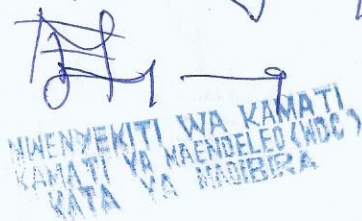 MWENYEKITI WA KAMATI
KAMATI YA MAENDELEO (WDC)
KATA YA MADIBIRA